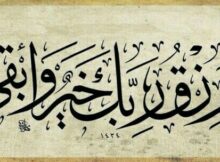 ورزق ربك خير وأبقى
١٤٣٤